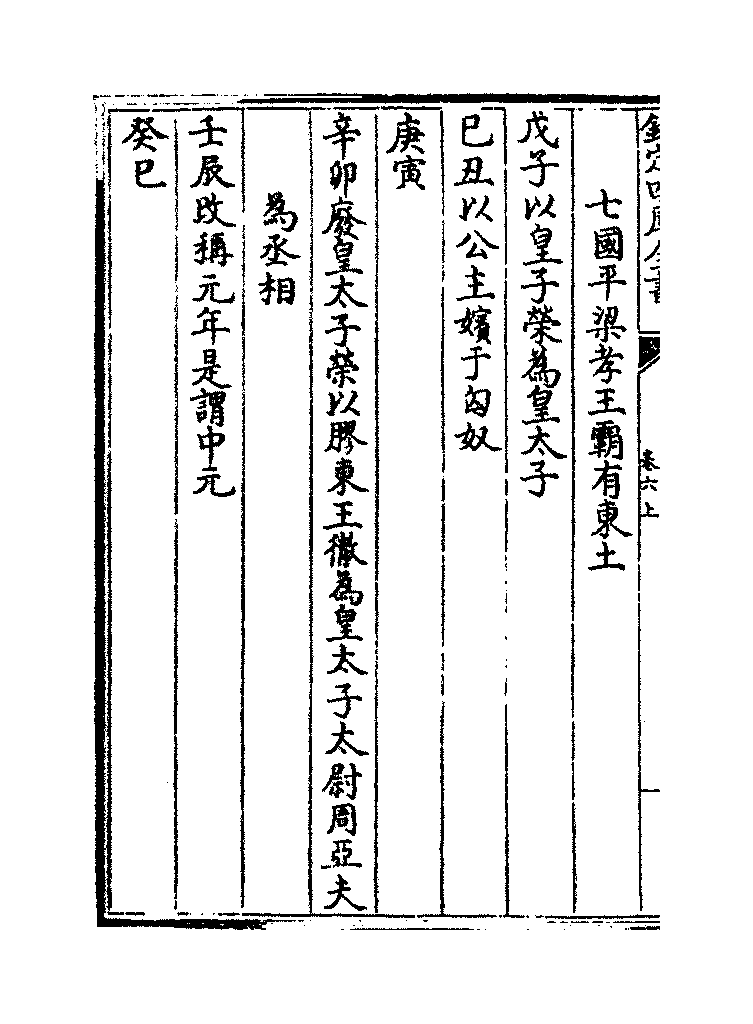 欽定四庫全書
卷六上
七國平梁孝王霸有東土
戊子以皇子榮為皇太子
己丑以公主嬪于匈奴
庚寅
辛卯廢皇太子榮以膠東王徹為皇太子太尉周亞夫
為丞相
壬辰改稱元年是謂中元
癸巳